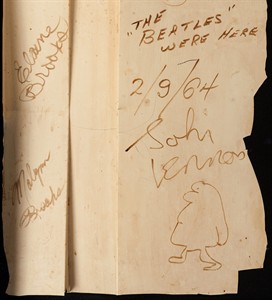 Elaine
Brooks
Brooks
"THE
BEATLES"
WERE HERE
2/9/64
John
Lennon